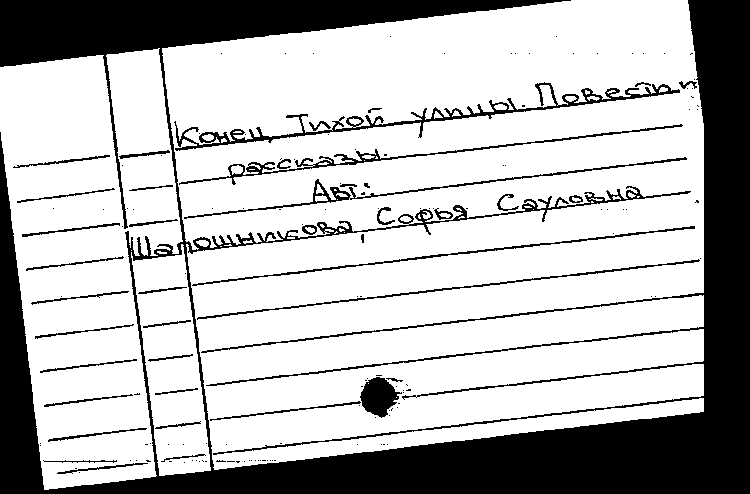 Конец Тихой улицы. Повести и
рассказы.
Авт.:
Шапошникова, Софья Сауловна